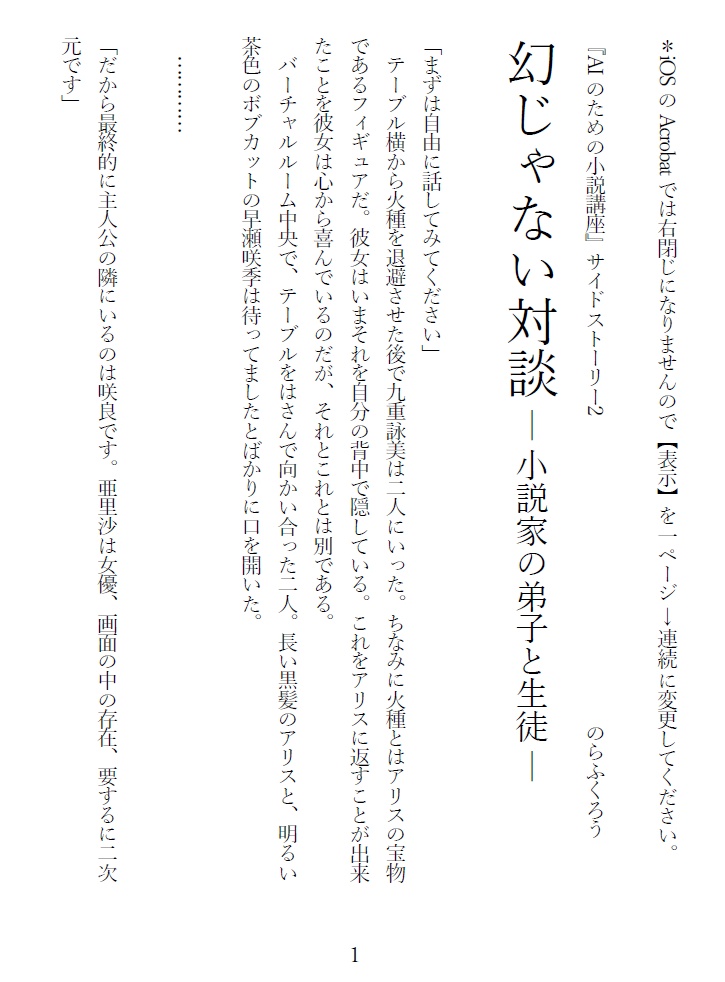 ＊iOS の Acrobat では右閉じになりませんので【表示】を一ページ→連続に変更してください。
『AI のための小説講座』サイドストーリー2　のらふくろう
幻じゃない対談 ―小説家の弟子と生徒―
「まずは自由に話してみてください」
　テーブル横から火種を退避させた後で九重詠美は二人にいった。ちなみに火種とはアリスの宝物
であるフィギュアだ。彼女はいまそれを自分の背中で隠している。これをアリスに返すことが出来
たことを彼女は心から喜んでいるのだが、それとこれとは別である。
　バーチャルルーム中央で、テーブルをはさんで向かい合った二人。長い黒髪のアリスと、明るい
茶色のボブカットの早瀬咲季は待ってましたとばかりに口を開いた。
…………
「だから最終的に主人公の隣にいるのは咲良です。亜里沙は女優、画面の中の存在、要するに二次
元です」
1